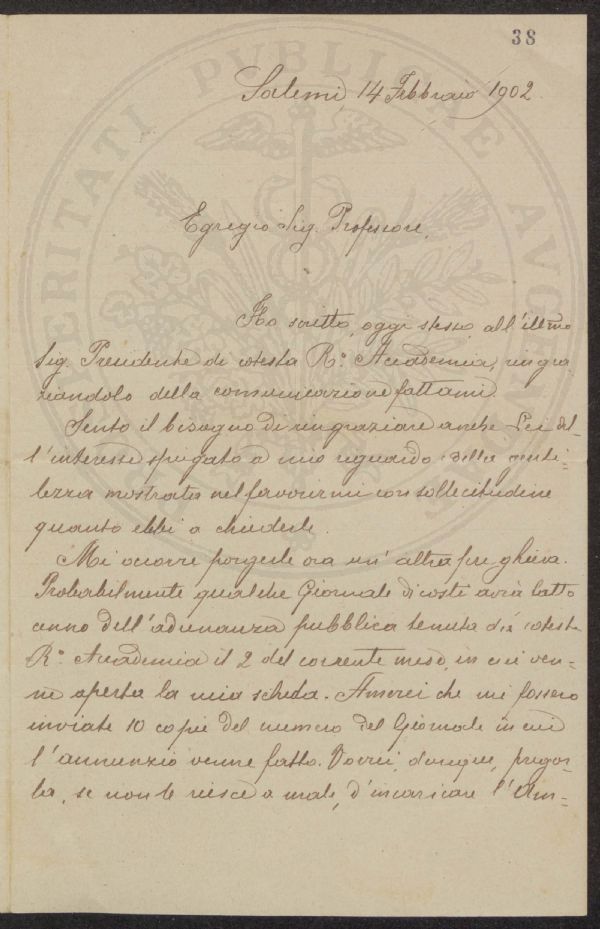 38
PROSPERITATI PUBLICAE AUGENDAE
Salemi, 14 Febbraio 1902.
Egregio Sig. Professore,
Ho scritto, oggi stesso, all'Ill.mo
Sig. Presidente di cotesta R.a Accademia, ringra
ziandolo della comunicazione fattami.
Sento il bisogno di ringraziare anche Lei del-
l'interesse spiegato a mio riguardo e della genti-
lezza mostrata nel favorirmi con sollecitudine
quanto ebbi a chiederle.
Mi occorre porgerle ora un'altra preghiera.
Probabilmente qualche Giornale di costì avrà fatto
cenno dell'adunanza pubblica tenuta da cotesta
R.a Accademia il 2 del corrente mese, in cui ven-
ne aperta la mia scheda. Amerei che mi fossero
inviate 10 copie del numero del Giornale in cui
l'annunzio venne fatto. Vorrei, dunque, pregar-
la, se non le riesce a male, d'incaricare l'Am-